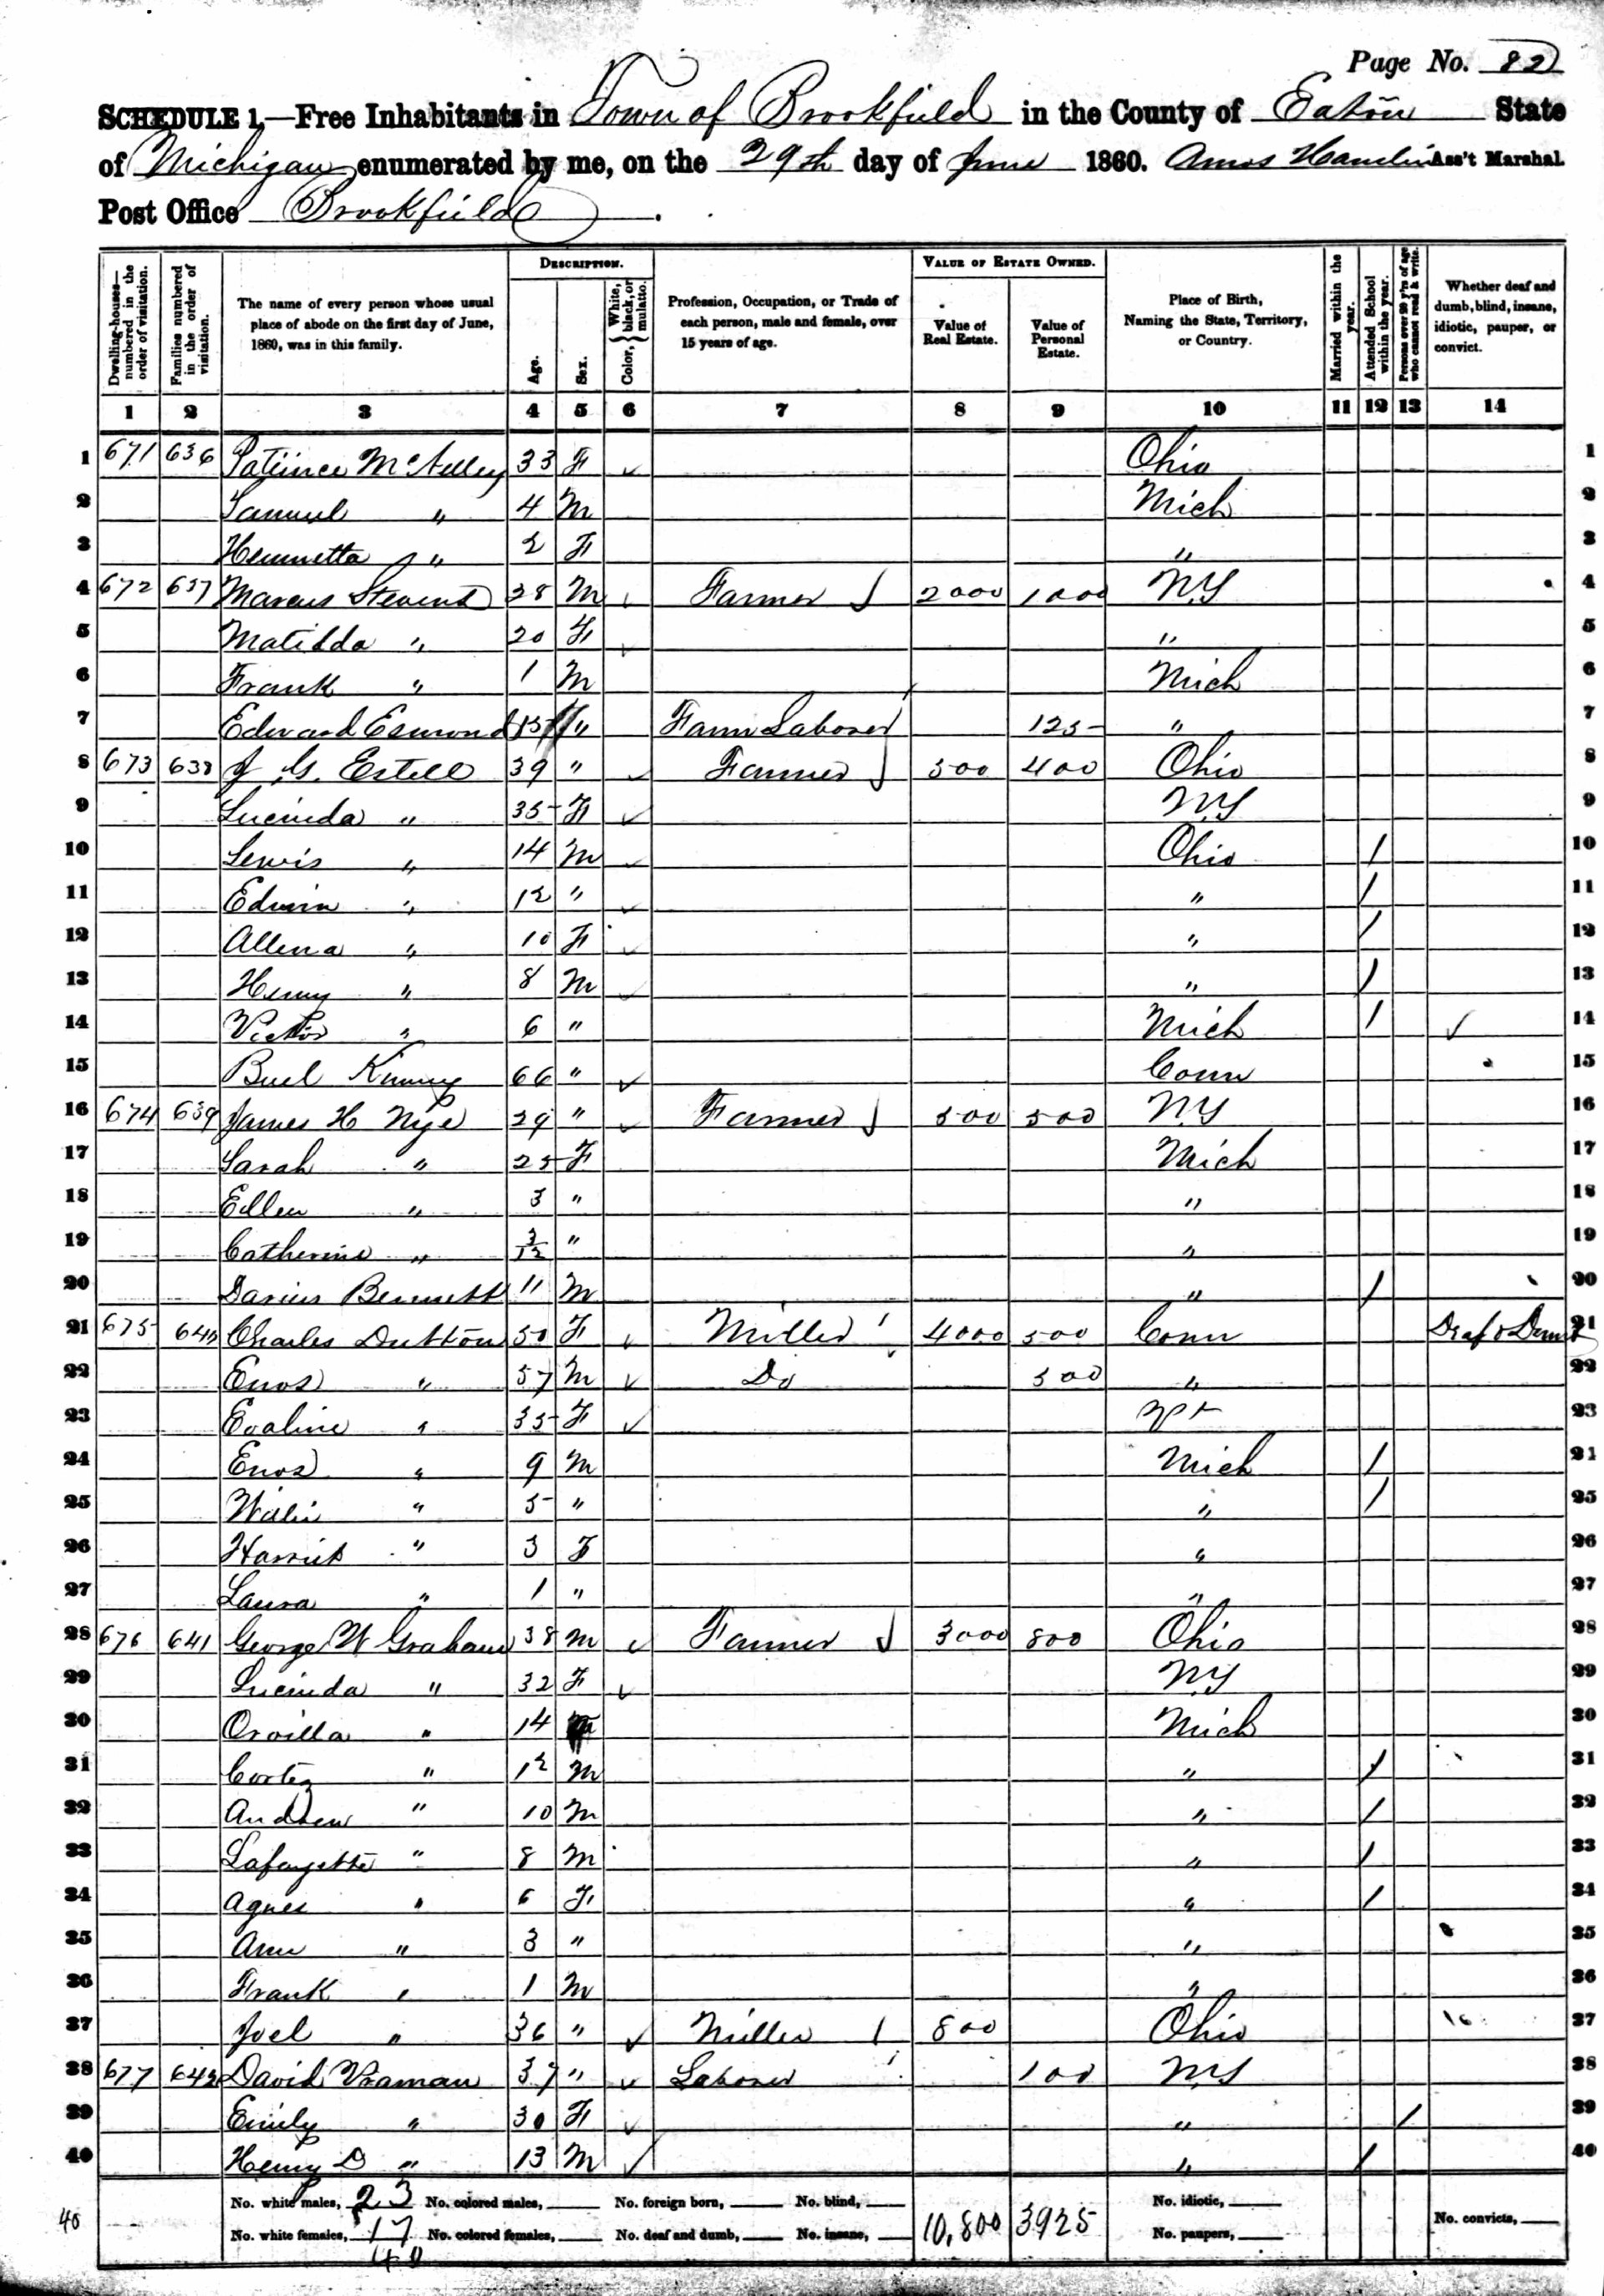 Page No. 82
SCHEDULE 1.—Free Inhabitants in Town of Brookfield in the County of Eaton State
of Michigan enumerated by me, on the 29th day of June 1860. Amos Hamlin Ass't Marshal.
Post Office Brookfield.
Dwelling-houses—numbered in the order of visitation.
Families numbered in the order of visitation.
The name of every person whose usual place of abode on the first day of June, 1860, was in this family.
DESCRIPTION.
Age.
Sex.
Color, { White, black, or mulatto.
Profession, Occupation, or Trade of each person, male and female, over 15 years of age.
VALUE OF ESTATE OWNED.
Value of Real Estate.
Value of Personal Estate.
Place of Birth, Naming the State, Territory, or Country.
Married within the year.
Attended School within the year.
Persons over 20 y'rs of age who cannot read & write.
Whether deaf and dumb, blind, insane, idiotic, pauper, or convict.
1 2 3 4 5 6 7 8 9 10 11 12 13 14
1 671 636 Patience 33 F Ohio 1
2 Samuel " 4 M Mich 2
3 Henrietta " 2 F " 3
4 672 637 Marcus Stevens 28 M Farmer 2000 1000 NY 4
5 Matilda " 20 F " 5
6 Frank " 1 M Mich 6
7 Edward Esmond 15 " Farm Laborer 125 " 7
8 673 638 J G. Estell 39 " Farmer 500 400 Ohio 8
9 Lucinda " 35 F NY 9
10 Lewis " 14 M Ohio / 10
11 Edwin " 12 " " / 11
12 Allena " 10 F " / 12
13 Henry " 8 M " / 13
14 Victor " 6 " Mich / 14
15 Buel Kinney 66 " Conn 15
16 674 639 James H Nye 29 " Farmer 500 500 NY 16
17 Sarah " 25 F Mich 17
18 Ellen " 3 " " 18
19 Catherine " 3/12 " " 19
20 Darius Bennett 11 M " / 20
21 675 640 Charles Dutton 50 F Miller 4000 500 Conn Deaf & Dumb 21
22 Enos " 57 M Do 500 " 22
23 Evaline " 35 F 23
24 Enos " 9 M Mich / 24
25 Willie " 5 " " / 25
26 Harriet " 3 F " 26
27 Laura " 1 " " 27
28 676 641 George W Graham 38 M Farmer 3000 800 Ohio 28
29 Lucinda " 32 F NY 29
30 Orvilla " 14 Mich 30
31 Cortez " 12 M " / 31
32 Andrew " 10 M " / 32
33 Lafayette " 8 M " / 33
34 Agnes " 6 F " / 34
35 Ann " 3 " " 35
36 Frank " 1 M " 36
37 Joel " 36 " Miller 800 Ohio 37
38 677 642 David Vraman 37 " Laborer 100 NY 38
39 Emily " 30 F " / 39
40 Henry D " 13 M " / 40
40 No. white males, 23 No. colored males, No. foreign born, No. blind, 10,800 3925 No. idiotic,
No. white females, 17 No. colored females, No. deaf and dumb, No. insane, No. paupers, No. convicts,
40